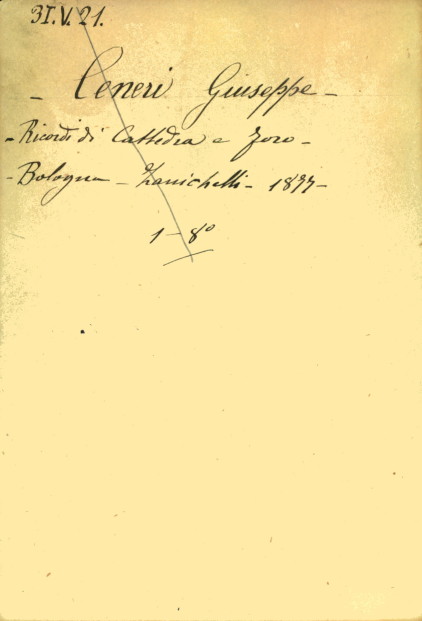 31.V.21.
- Ceneri Giuseppe -
- Ricordi di Cattedra e Foro -
- Bologna - Zanichelli - 1877 -
1 - 8°